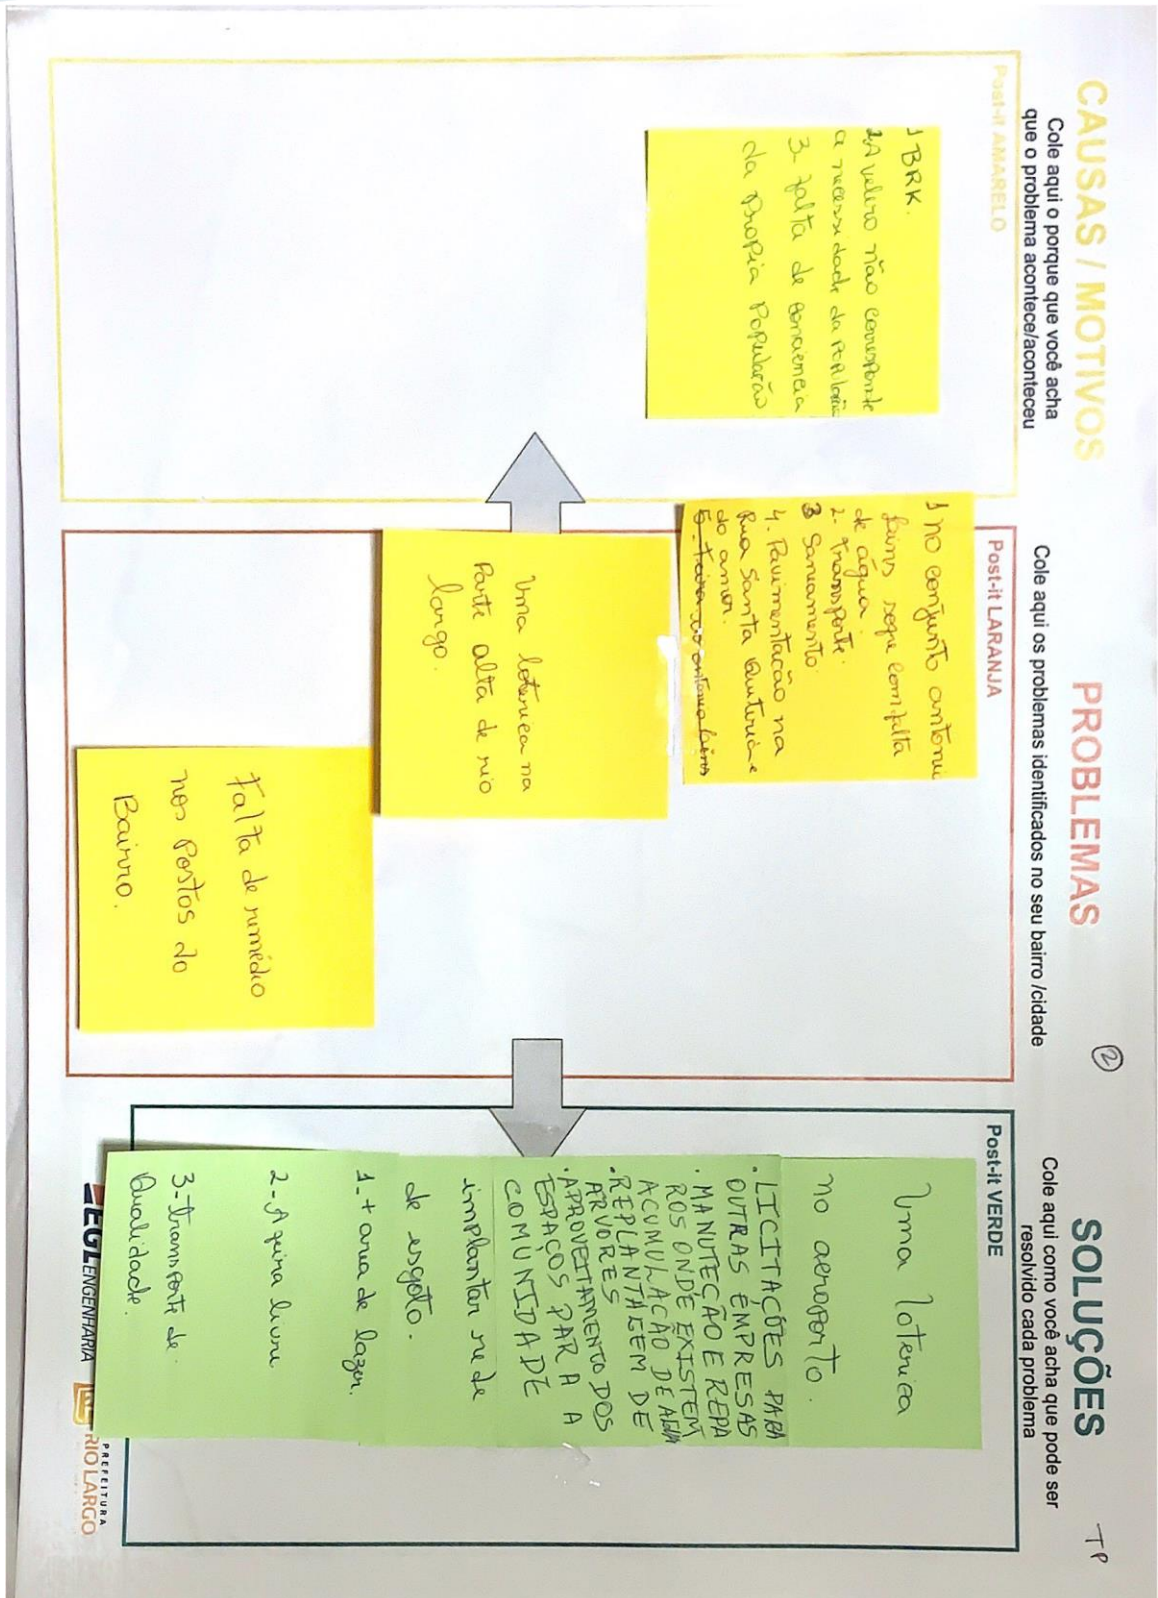 CAUSAS / MOTIVOS
Cole aqui o porque que você acha
que o problema acontece/aconteceu
Post-it AMARELO
1 BRK.
2. A veleiro não corresponde
a necessidade da população
3- falta de conciencia
da Propia População
PROBLEMAS
Cole aqui os problemas identificados no seu bairro /cidade
Post-it LARANJA
1 no conjunto antonio
Lins segue com falta
de água.
2- Transporte.
3 Saneamento
4. Pavimentação na
Rua Santa Quiteria e
do amor.
Uma loterica na
Parte alta de rio
largo.
Falta de remédio
nos Postos do
Bairro.
2
SOLUÇÕES
Cole aqui como você acha que pode ser
resolvido cada problema
TP
Post-it VERDE
Uma loterica
no aeroporto.
. LICITAÇÕES PARA
OUTRAS EMPRESAS
. MANUTEÇÃO E REPA
ROS ONDE EXISTEM
ACUMULAÇÃO DE AGUA
. REPLANTAGEM DE
ARVORES
. APROVEITAMENTO DOS
ESPAÇOS PARA A
COMUNIDADE
implantar rede
de esgoto.
1- + area de lazer.
2- A feira livre
3- transporte de
Qualidade.
EGL ENGENHARIA
PREFEITURA
RIO LARGO